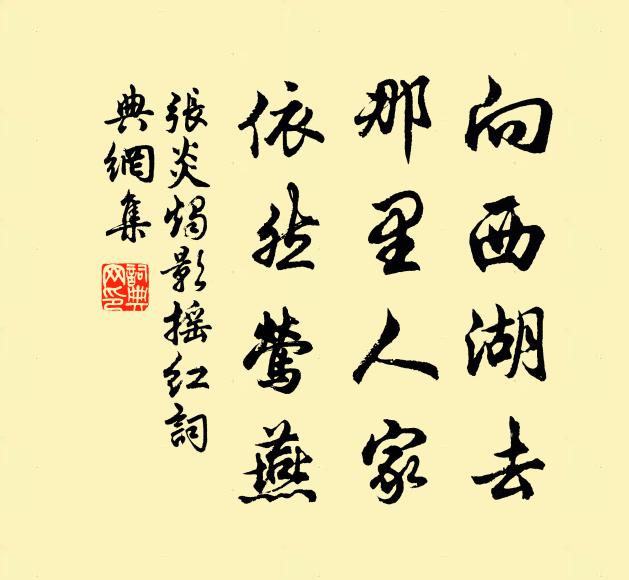 向西湖去
那里人家
依然鶯燕
張炎燭影摇紅詞
典網集
詞典網印